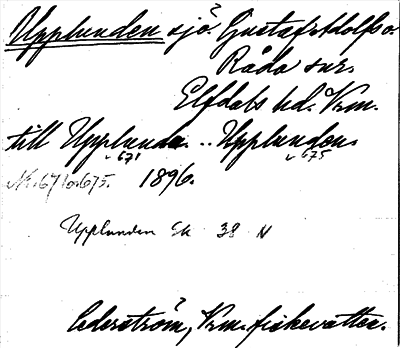 Upplunden sjö? Gustaf Adolfs o.
Råda snr.
Elfdals hd. Vrm.
till Upplunda .. Upplunden.
v 671 v 675
Nr. 671 o. 675. 1896.
Upplunden Ek 38 N
Cederström, Vrm. fiskevatten.